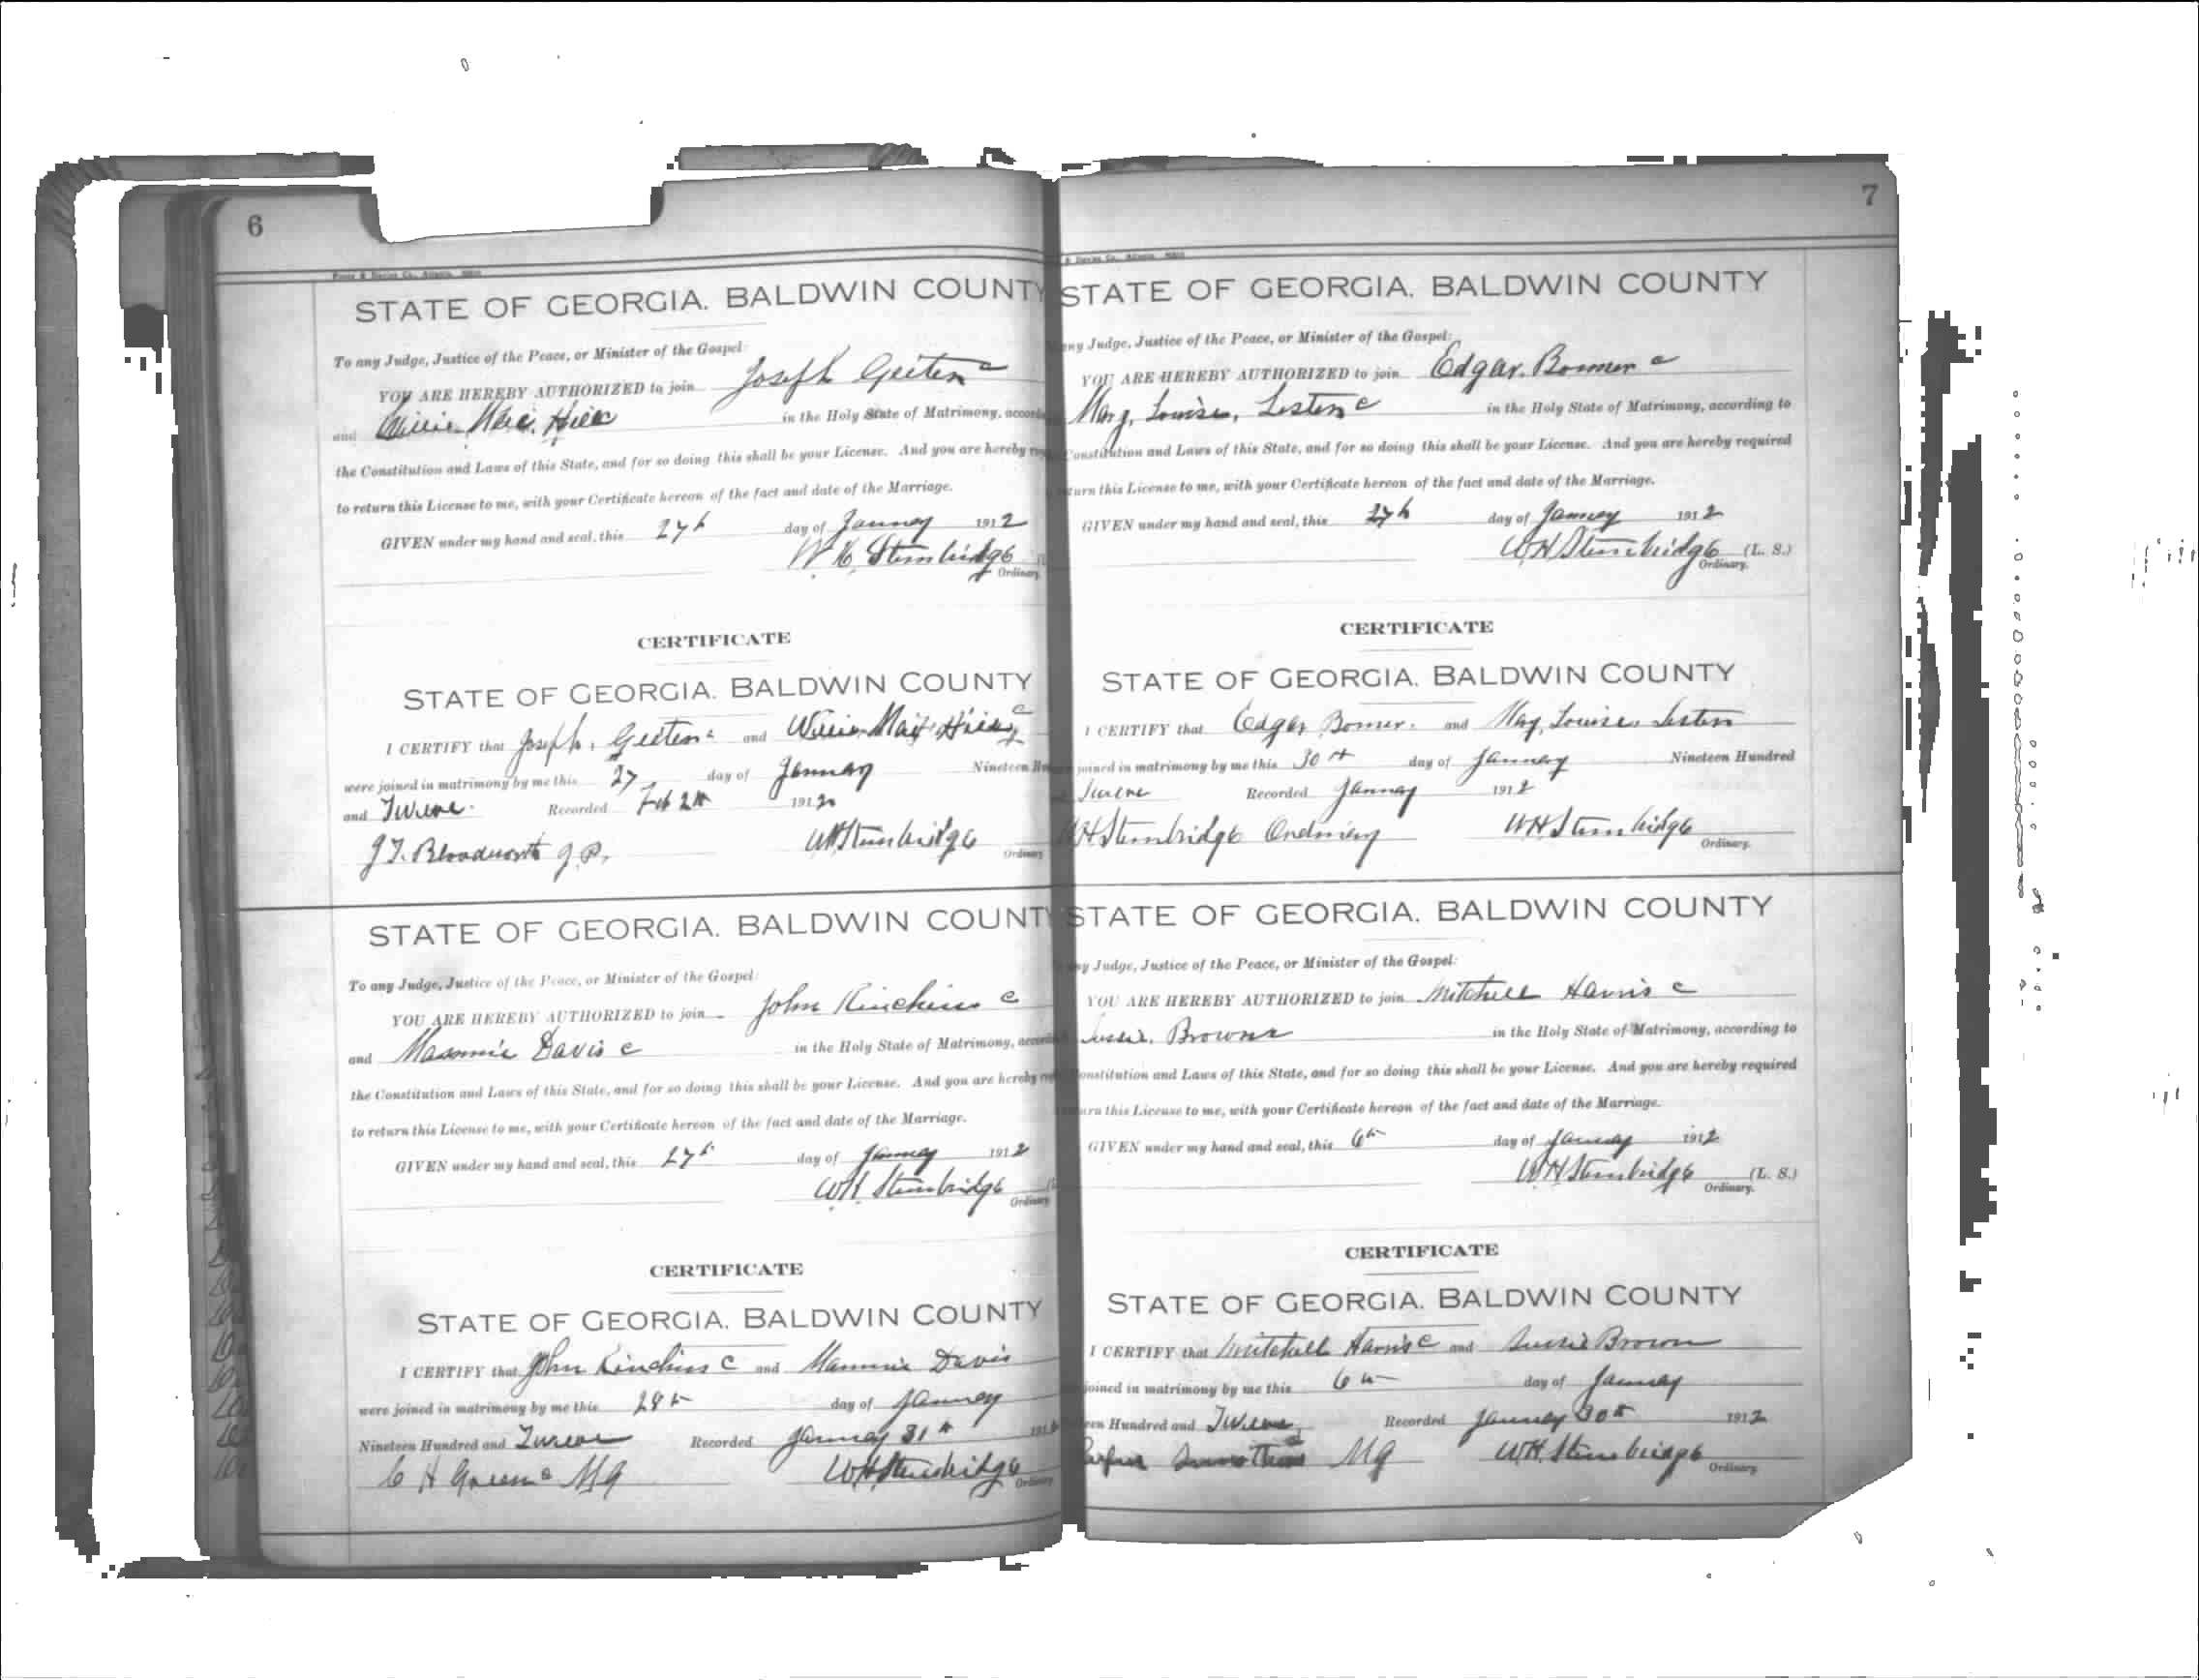 6
STATE OF GEORGIA. BALDWIN COUNTY
To any Judge, Justice of the Peace, or Minister of the Gospel:
YOU ARE HEREBY AUTHORIZED to join Joseph c
and Hill in the Holy State of Matrimony,
the Constitution and Laws of this State, and for so doing this shall be your License. And you are hereby
to return this License to me, with your Certificate hereon of the fact and date of the Marriage.
GIVEN under my hand and seal, this 27th day of January 1912
W H Stembridge
Ordinary
CERTIFICATE
STATE OF GEORGIA. BALDWIN COUNTY
I CERTIFY that Joseph c and Willie c
were joined in matrimony by me this 27 day of January Nineteen
and Twelve Recorded Feb 191
J.T. Bloodworth J.P. WH Stembridge
Ordinary
STATE OF GEORGIA. BALDWIN COUNTY
To any Judge, Justice of the Peace, or Minister of the Gospel:
YOU ARE HEREBY AUTHORIZED to join John Kinchins c
and Davis c in the Holy State of Matrimony,
the Constitution and Laws of this State, and for so doing this shall be your License. And you are hereby
to return this License to me, with your Certificate hereon of the fact and date of the Marriage.
GIVEN under my hand and seal, this 27th day of January 1912
WH Stembridge
Ordinary
CERTIFICATE
STATE OF GEORGIA. BALDWIN COUNTY
I CERTIFY that John Kinchins C and Mammie Davis
were joined in matrimony by me this 28th day of January
Nineteen Hundred and Twelve Recorded January 31st
C H Green MG WH Stembridge
Ordinary
7
STATE OF GEORGIA. BALDWIN COUNTY
any Judge, Justice of the Peace, or Minister of the Gospel:
YOU ARE HEREBY AUTHORIZED to join Edgar. Bomer c
Mary, Louise, c in the Holy State of Matrimony, according to
Constitution and Laws of this State, and for so doing this shall be your License. And you are hereby required
turn this License to me, with your Certificate hereon of the fact and date of the Marriage.
GIVEN under my hand and seal, this 27th day of January 1912
WH Stembridge (L. S.)
Ordinary.
CERTIFICATE
STATE OF GEORGIA. BALDWIN COUNTY
I CERTIFY that Edgar Bomer. and Mary, Louise,
joined in matrimony by me this 30th day of January Nineteen Hundred
Twelve Recorded January 1912
WH Stembridge Ordinary WH Stembridge
Ordinary.
STATE OF GEORGIA. BALDWIN COUNTY
ny Judge, Justice of the Peace, or Minister of the Gospel:
YOU ARE HEREBY AUTHORIZED to join Mitchell Harris c
Brown c in the Holy State of Matrimony, according to
onstitution and Laws of this State, and for so doing this shall be your License. And you are hereby required
urn this License to me, with your Certificate hereon of the fact and date of the Marriage.
GIVEN under my hand and seal, this 6th day of January 1912
WH Stembridge (L. S.)
Ordinary.
CERTIFICATE
STATE OF GEORGIA. BALDWIN COUNTY
I CERTIFY that Mitchell Harris C and Brown
joined in matrimony by me this 6th day of January
een Hundred and Twelve Recorded January 30th 1912
MG WH Stembridge
Ordinary